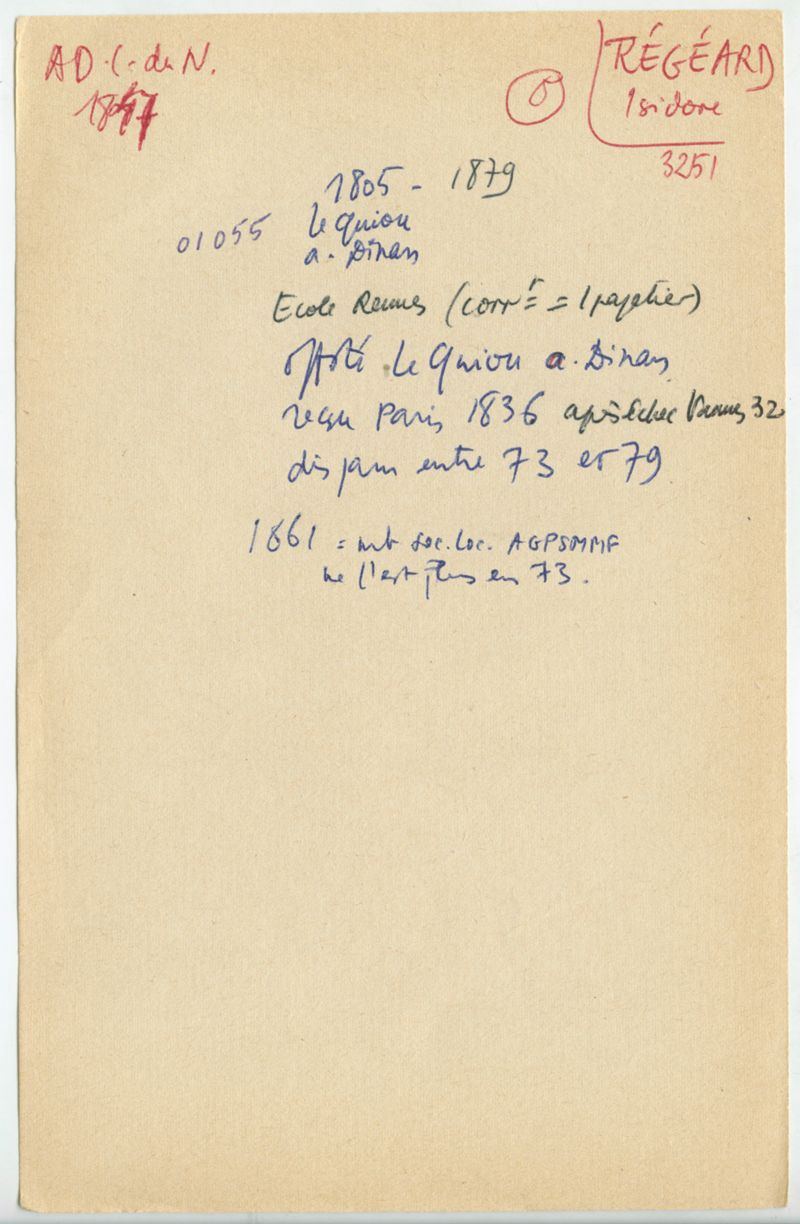 AD. C. du N.
RÉGÉARD
Isidore
3251
1805 - 1879
01055 Le Quiou
a. Dinan
Ecole Rennes (
Le Quiou a. Dinan
reçu Paris 1836 après échec Vannes 32
entre 73 et 79
1861 = mb soc. loc. AGPSMMF
ne l'est plus en 73.